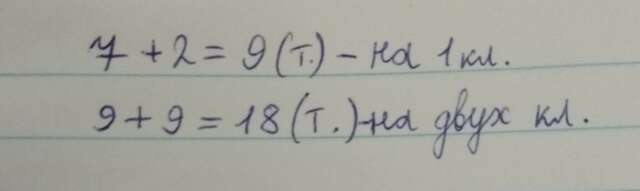 7 + 2 = 9 (т.) – на 1 кл.
9 + 9 = 18 (т.) – на двух кл.